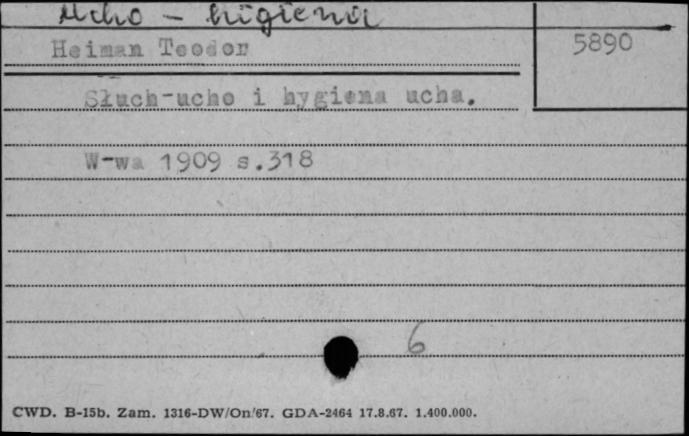 Ucho - higiena
Heiman Teodor
5890
Słuch-ucho i hygiena ucha.
W-wa 1909 s.318
6
CWD. B-15b. Zam. 1316-DW/On/67. GDA-2464 17.8.67. 1.400.000.